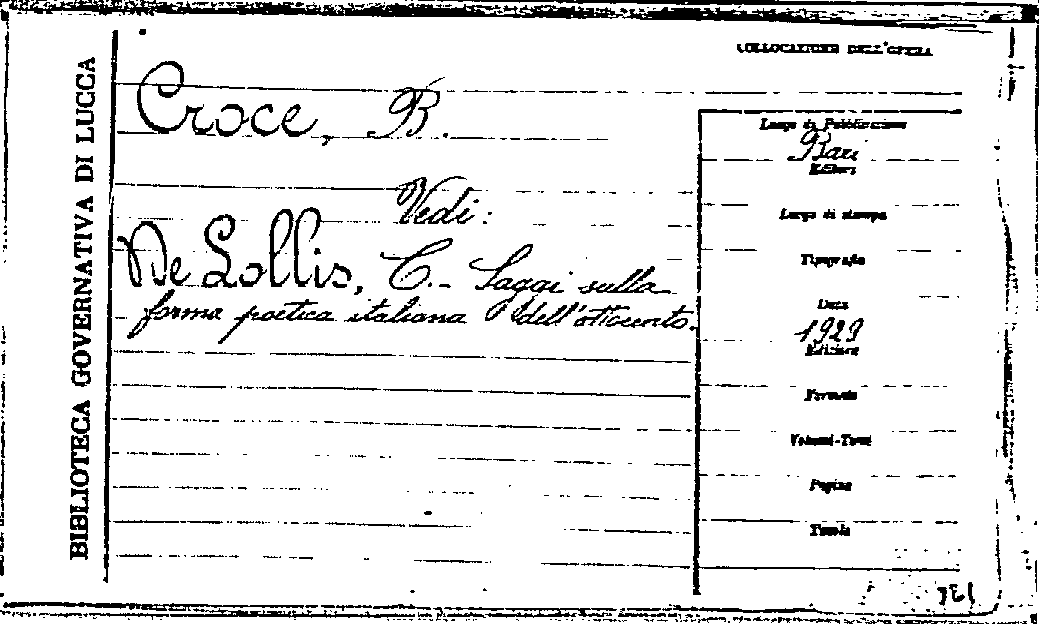 BIBLIOTECA GOVERNATIVA DI LUCCA
COLLOCAZIONE DELL'OPERA
Croce, B.
Vedi:
De Lollis, C. - Saggi sulla
forma poetica italiana dell'ottocento.
Luogo di Pubblicazione
Bari
Editore
Luogo di stampa
Tipografia
Data
1929
Edizione
Formato
Volumi-Tomi
Pagine
Tavole